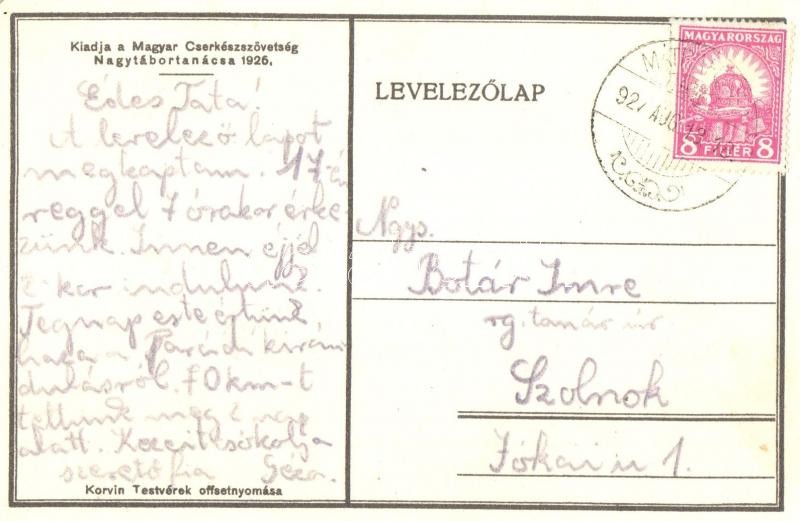 Kiadja a Magyar Cserkészszövetség
Nagytábortanácsa 1926.
Édes Tata!
A levelező lapot
megkaptam. 17-én
reggel 7 órakor érke-
zünk. Innen éjjel
2 kor indulunk.
Tegnap este értünk
haza a Parádi kirán
dulásról. 70 km-t
tettünk meg 2 nap
alatt. Kezeit csókolja
szerető fia Géza.
Korvin Testvérek offsetnyomása
LEVELEZŐLAP
MAGYARORSZÁG
8 FILLÉR 8
927 AUG
Ngys.
Botár Imre
rg. tanár úr
Szolnok
Jókai u 1.